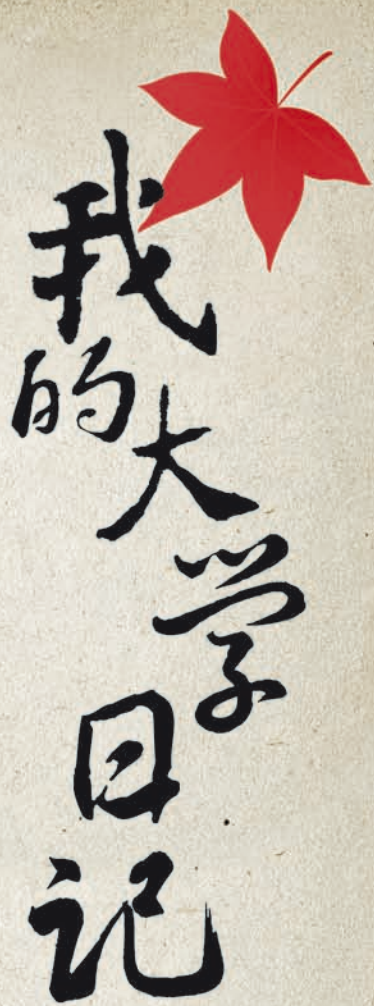 我的大学日记